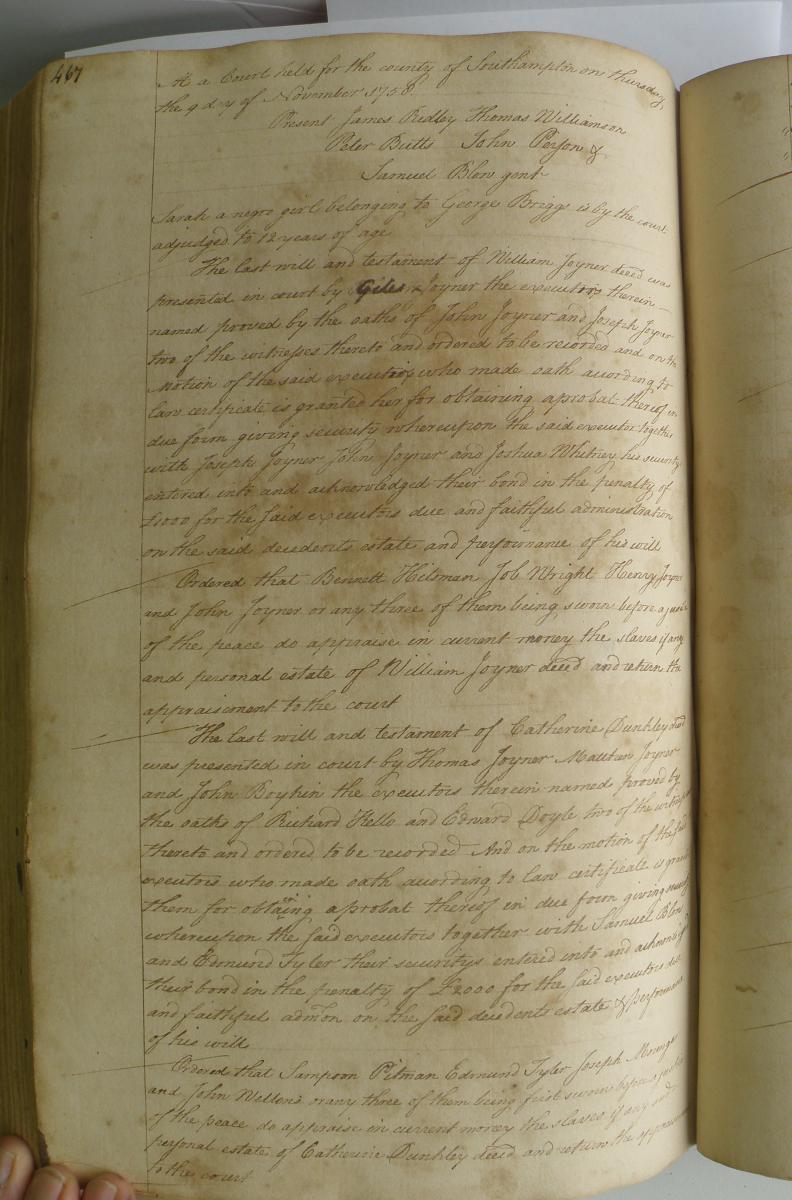 467
At a Court held for the county of Southampton on thursday
the 9 day of November 1758
Present James Ridley Thomas Williamson
Peter Butts John Person &
Samuel Blow gent
Sarah a negro girl belonging to George Briggs is by the court
adjudged to 12 years of age
The last will and testament of William Joyner deced was
presented in court by Giles Joyner the executors therein
named proved by the oaths of John Joyner and Joseph Joyner
two of the witnesses thereto and ordered to be recorded and on the
Motion of the said executrix who made oath according to
law certificate is granted her for obtaining a probat thereof in
due form giving security whereupon the said executor together
with Joseph Joyner John Joyner and Joshua Whitney his securitys
entered into and acknowledged their bond in the penalty of
£1000 for the said executors due and faithful administration
on the said decedents estate and performance of his will
Ordered that Bennett Hilsman Job Wright Henry Joyner
and John Joyner or any three of them being sworn before a justice
of the peace do appraise in current money the slaves if any
and personal estate of William Joyner deced and return the
appraisement to the court
The last will and testament of Catherine Dunkley deced
was presented in court by Thomas Joyner Joyner
and John Boykin the executors therein named proved by
the oaths of Richard Kello and Edward Doyle two of the witnesses
thereto and ordered to be recorded And on the motion of the said
executors who made oath according to law certificate is granted
them for obtaining a probat thereof in due form giving security
whereupon the said executors together with Samuel Blow
and Edmund Tyler their securitys entered into and acknowledged
their bond in the penalty of £2000 for the said executors due
and faithful admon on the said decedents estate & performance
of his will
Ordered that Sampson Pitman Edmund Tyler Joseph
and John Wellons or any three of them being first sworn before a justice
of the peace do appraise in current money the slaves if any and
personal estate of Catherine Dunkley deced and return the appraisement
to the court